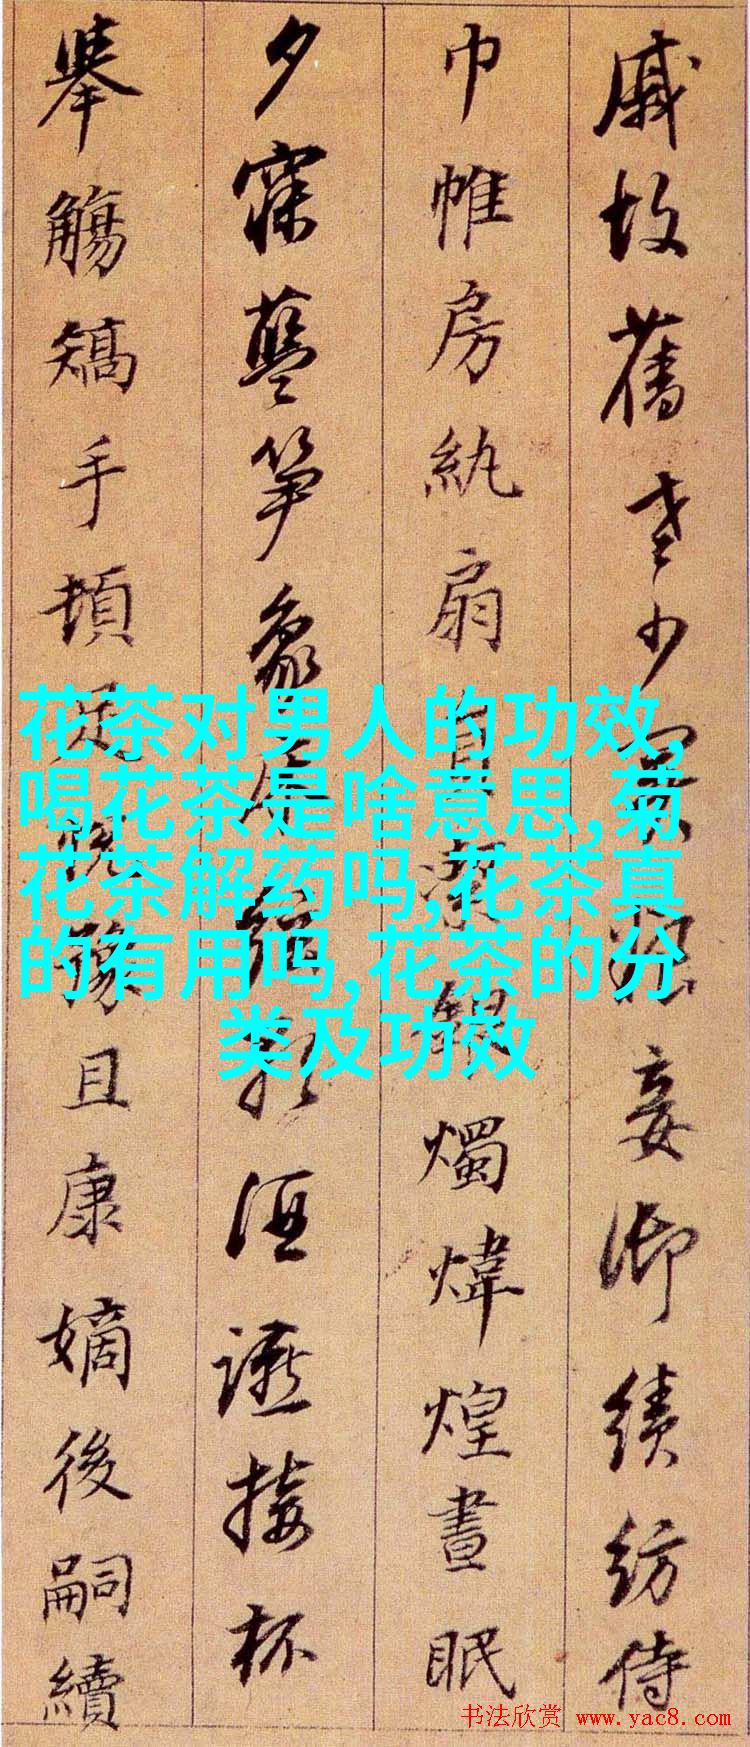 戚故舊老少異粮妾御績紡侍
巾帷房紈扇員潔銀燭煒煌晝眠
夕寐藍筍象床絃歌酒讌接杯
舉觴矯手頓足悅豫且康嫡後嗣續
花茶对男人的功效,
喝花茶是啥意思,菊
花茶解药吗,花茶真
的有用吗,花茶的分
类及功效
书法欣赏 www.yac8.com